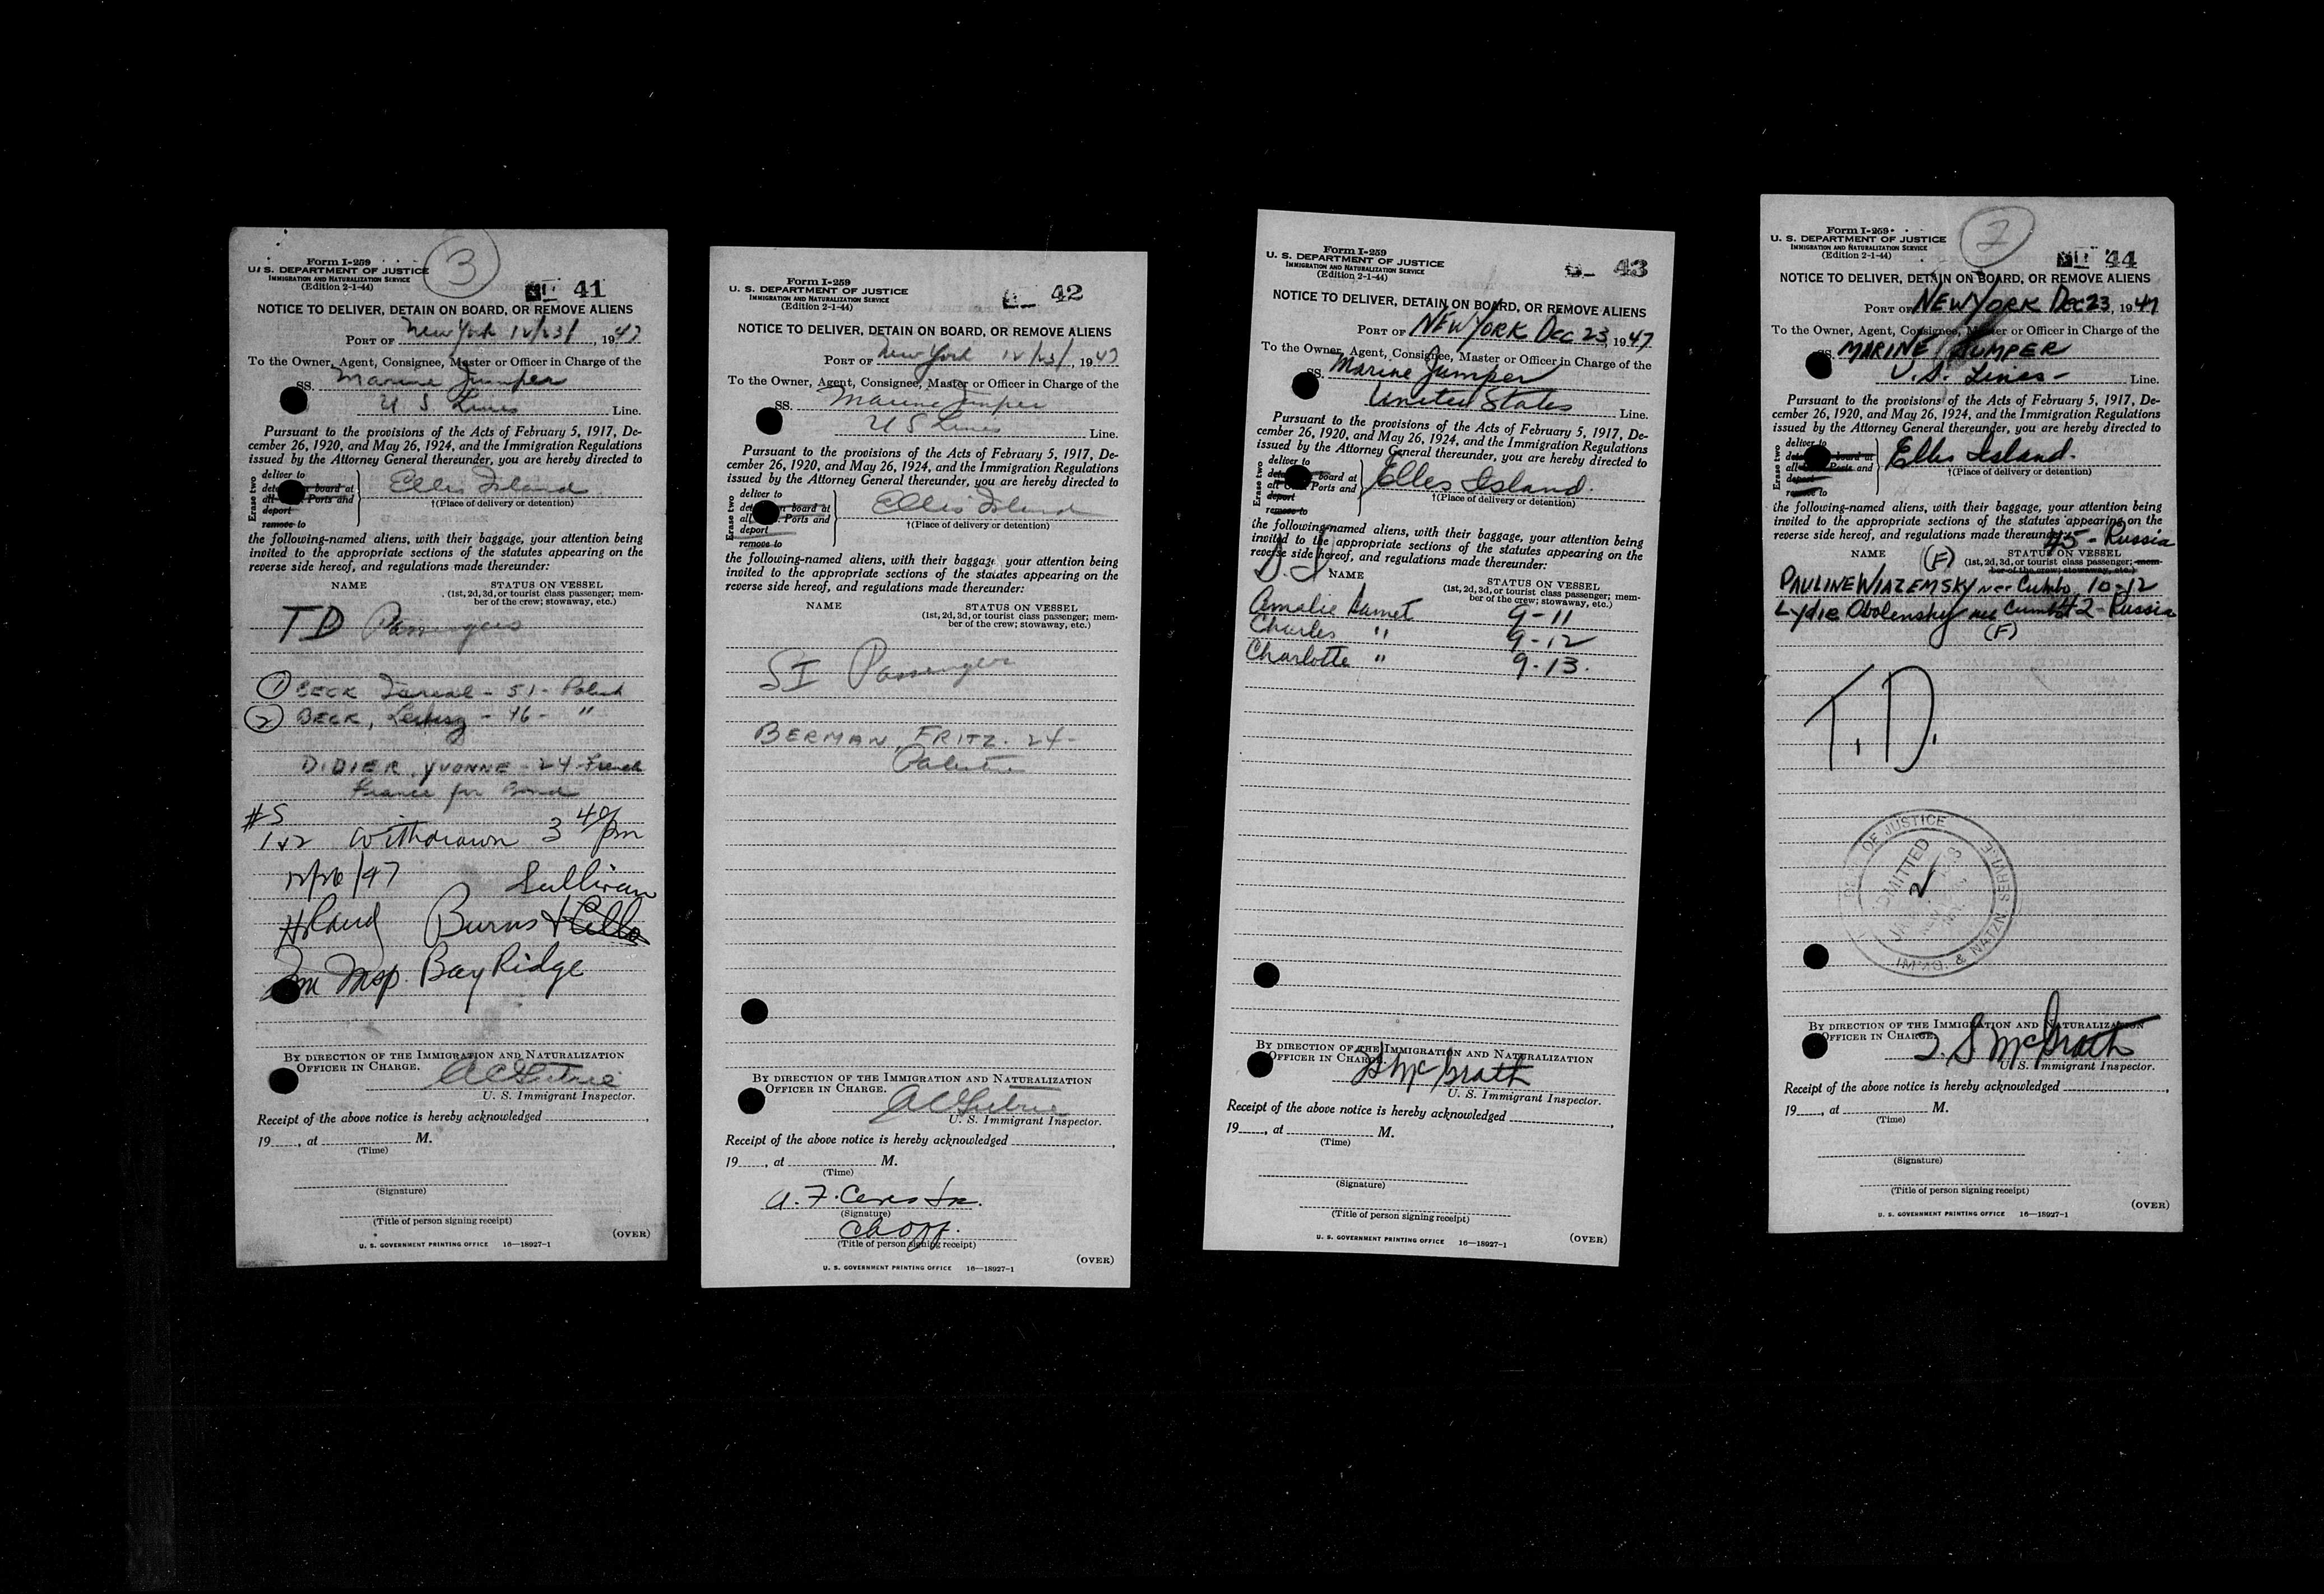 Form I-259
U. S. DEPARTMENT OF JUSTICE
IMMIGRATION AND NATURALIZATION SERVICE
(Edition 2-1-44)
3
41
NOTICE TO DELIVER, DETAIN ON BOARD, OR REMOVE ALIENS
PORT OF New York 12/23/, 1947
To the Owner, Agent, Consignee, Master or Officer in Charge of the
SS. Marine Jumper
U S Lines Line.
Pursuant to the provisions of the Acts of February 5, 1917, De-
cember 26, 1920, and May 26, 1924, and the Immigration Regulations
issued by the Attorney General thereunder, you are hereby directed to
Erase two
deliver to
board at
all Ports and
deport
remove to
Ellis Island
†(Place of delivery or detention)
the following-named aliens, with their baggage, your attention being
invited to the appropriate sections of the statutes appearing on the
reverse side hereof, and regulations made thereunder:
NAME STATUS ON VESSEL
(1st, 2d, 3d, or tourist class passenger; mem-
ber of the crew; stowaway, etc.)
TD Passengers
1 BECK - 51 - Polish
2 BECK, - 46 - "
DIDIER, YVONNE - 24 - French
France for Bond
#5
1+2 withdrawn 3 40 pm
12/26/47 Sullivan
Burns
Imm Insp. Bay Ridge
BY DIRECTION OF THE IMMIGRATION AND NATURALIZATION
OFFICER IN CHARGE.
U. S. Immigrant Inspector.
Receipt of the above notice is hereby acknowledged
19, at M.
(Time)
(Signature)
(Title of person signing receipt)
(OVER)
U. S. GOVERNMENT PRINTING OFFICE 16—18927-1
Form I-259
U. S. DEPARTMENT OF JUSTICE
IMMIGRATION AND NATURALIZATION SERVICE
(Edition 2-1-44)
42
NOTICE TO DELIVER, DETAIN ON BOARD, OR REMOVE ALIENS
PORT OF New York 12/23/, 1947
To the Owner, Agent, Consignee, Master or Officer in Charge of the
SS. Marine Jumper
U S Lines Line.
Pursuant to the provisions of the Acts of February 5, 1917, De-
cember 26, 1920, and May 26, 1924, and the Immigration Regulations
issued by the Attorney General thereunder, you are hereby directed to
Erase two
deliver to
board at
all Ports and
deport
remove to
Ellis Island
†(Place of delivery or detention)
the following-named aliens, with their baggage, your attention being
invited to the appropriate sections of the statutes appearing on the
reverse side hereof, and regulations made thereunder:
NAME STATUS ON VESSEL
(1st, 2d, 3d, or tourist class passenger; mem-
ber of the crew; stowaway, etc.)
SI Passengers
BERMAN, FRITZ. 24 -
Palestine
BY DIRECTION OF THE IMMIGRATION AND NATURALIZATION
OFFICER IN CHARGE.
U. S. Immigrant Inspector.
Receipt of the above notice is hereby acknowledged
19, at M.
(Time)
A. F.
(Signature)
(Title of person signing receipt)
(OVER)
U. S. GOVERNMENT PRINTING OFFICE 16—18927-1
Form I-259
U. S. DEPARTMENT OF JUSTICE
IMMIGRATION AND NATURALIZATION SERVICE
(Edition 2-1-44)
43
NOTICE TO DELIVER, DETAIN ON BOARD, OR REMOVE ALIENS
PORT OF NEW YORK Dec 23, 1947
To the Owner, Agent, Consignee, Master or Officer in Charge of the
SS. Marine Jumper
United States Line.
Pursuant to the provisions of the Acts of February 5, 1917, De-
cember 26, 1920, and May 26, 1924, and the Immigration Regulations
issued by the Attorney General thereunder, you are hereby directed to
Erase two
deliver to
board at
all Ports and
deport
remove to
Elles Island.
†(Place of delivery or detention)
the following-named aliens, with their baggage, your attention being
invited to the appropriate sections of the statutes appearing on the
reverse side hereof, and regulations made thereunder:
S.I
NAME STATUS ON VESSEL
(1st, 2d, 3d, or tourist class passenger; mem-
ber of the crew; stowaway, etc.)
Amalie Kamet 9-11
Charles " 9-12
Charlotte " 9-13.
BY DIRECTION OF THE IMMIGRATION AND NATURALIZATION
OFFICER IN CHARGE.
McGrath
U. S. Immigrant Inspector.
Receipt of the above notice is hereby acknowledged
19, at M.
(Time)
(Signature)
(Title of person signing receipt)
(OVER)
U. S. GOVERNMENT PRINTING OFFICE 16—18927-1
Form I-259
U. S. DEPARTMENT OF JUSTICE
IMMIGRATION AND NATURALIZATION SERVICE
(Edition 2-1-44)
2
44
NOTICE TO DELIVER, DETAIN ON BOARD, OR REMOVE ALIENS
PORT OF NEW YORK Dec 23, 1947
To the Owner, Agent, Consignee, Master or Officer in Charge of the
SS. MARINE JUMPER
U.S. Lines - Line.
Pursuant to the provisions of the Acts of February 5, 1917, De-
cember 26, 1920, and May 26, 1924, and the Immigration Regulations
issued by the Attorney General thereunder, you are hereby directed to
Erase two
deliver to
board at
all Ports and
deport
remove to
Ellis Island.
†(Place of delivery or detention)
the following-named aliens, with their baggage, your attention being
invited to the appropriate sections of the statutes appearing on the
reverse side hereof, and regulations made thereunder:
45 - Russia
NAME (F) STATUS ON VESSEL
(1st, 2d, 3d, or tourist class passenger; mem-
ber of the crew; stowaway, etc.)
PAULINE WIAZEMSKY nee Cumbo 10-12
Lydie Obolensky nee Cumbo 42 - Russia
(F)
T.D.
DEPT. OF JUSTICE
ADMITTED
IMMIG. & NATZN. SERVICE
BY DIRECTION OF THE IMMIGRATION AND NATURALIZATION
OFFICER IN CHARGE.
McGrath
U. S. Immigrant Inspector.
Receipt of the above notice is hereby acknowledged
19, at M.
(Time)
(Signature)
(Title of person signing receipt)
(OVER)
U. S. GOVERNMENT PRINTING OFFICE 16—18927-1